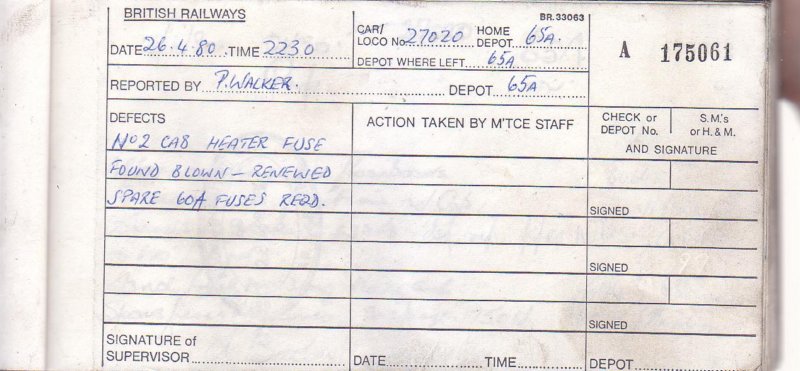 BRITISH RAILWAYS
BR.33063
DATE 26.4.80 TIME 2230
CAR/ LOCO No 27020 HOME DEPOT 65A
DEPOT WHERE LEFT 65A
A 175061
REPORTED BY P. WALKER. DEPOT 65A
DEFECTS
ACTION TAKEN BY M'TCE STAFF
CHECK or DEPOT No.
S.M.'s or H. & M.
AND SIGNATURE
No2 CAB HEATER FUSE
FOUND BLOWN – RENEWED
SPARE 60A FUSES REQD.
SIGNED
SIGNED
SIGNED
SIGNATURE of SUPERVISOR
DATE TIME
DEPOT